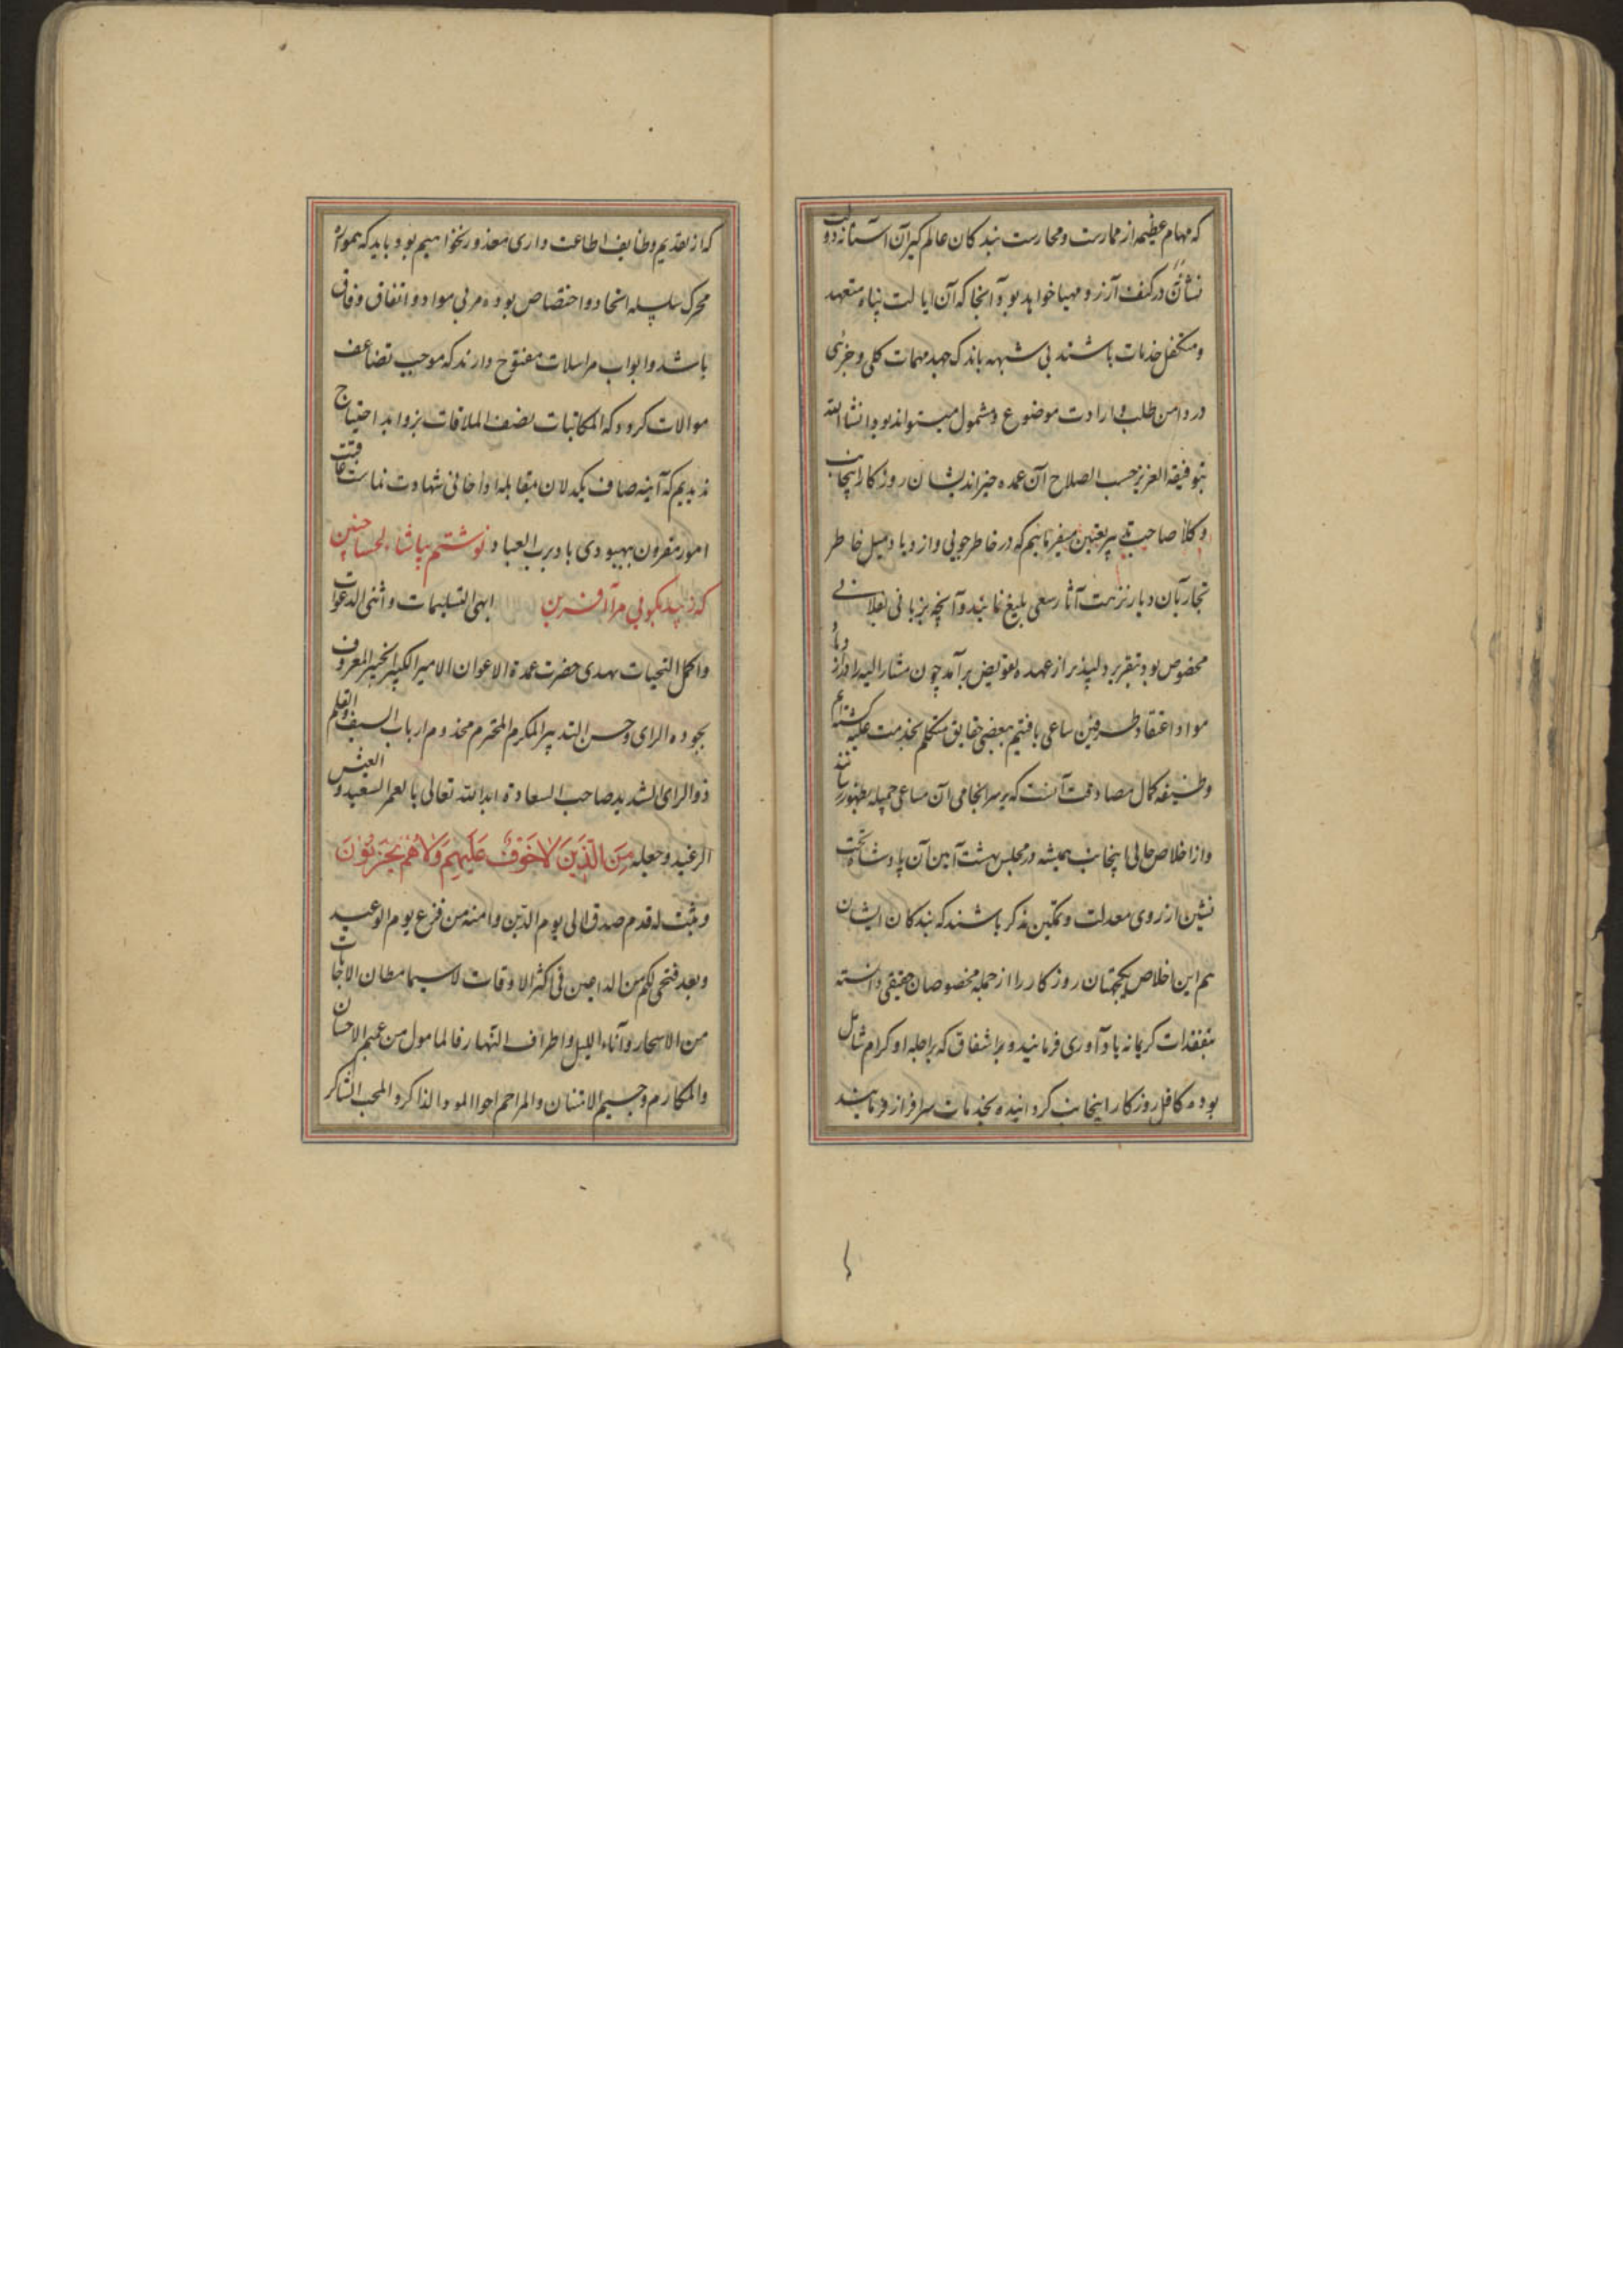 که مهام عظیمه از ممارست و محارست بندکان عالم کیر آن آستانه دولت
نشان در کنف آرزو مهیا خواهد بود آنجا که آن ایالت پناه متعهد
و متکفل خدمات باشند بی شبهه باندک جهد مهمات کلی و جزئی
در دامن طلب و ارادت موضوع و مشمول میتواند بود انشا الله
بتوفیقه العزیز حسب الصلاح آن عمده خیر اندیشان روزکار اینجانب
وکلا صاحب میفرمائیم که در خاطر جویی و ازدیاد میل خاطر
تجار آن دیار نزهت آثار سعی بلیغ نمایند و آنچه بزبانی فلانی
مخصوص بود بتقریر دلپذیر از عهده تفویض بر آمد چون مشار الیه را در ازدیاد
مواد اعتقاد طرفین ساعی یافتیم بعضی حقایق متکلم بخدمت علیه کشته ام
وظیفه کمال مصادقت آنست که بر سرانجامی آن مساعی جمیله بظهور رسانند
و از اخلاص حالی اینجانب همیشه در مجلس بهشت آیین آن پادشاه تخت
نشین از روی معدلت و تمکین مذکر باشند که بندکان ایشان
هم این اخلاص یکجهتان روزکار را از جمله مخصوصان حقیقی دانسته
بتفقدات کریمانه یاد آوری فرمایند و بر اشفاق که بر اجله او کرام شامل
بوده کافل روزکار اینجانب کردانیده بخدمات سرافراز فرمایند
که از تقدیم وظایف اطاعت داری معذور نخواهیم بود باید که همواره
محرک سلسله اتحاد و اختصاص بوده مربی مواد و اتفاق وفاق
باشد و ابواب مراسلات مفتوح دارند که موجب تضاعف
موالات کردد که المکاتبات نصف الملاقات بزواید احتیاج
ندیدیم که آینه صاف یکدلان مقابله اواخانی شهادت نماست عاقبت
امور مقرون ببهبودی باد برب العباد نوشتم بپاشاء لحسا چنین
که زیبد بکوئی مرآ آفرین ابهی التسلیمات و اثنی الدعوات
و اکمل التحیات یهدی حضرت عمدة الاعوان الامیر الکبیر الخبیر المعروف
بجوده الرای و حسن التدبیر المکرم المحترم مخدوم ارباب السیف والقلم
ذو الرای الشدید صاحب السعادة ابد الله تعالی بالعمر السعید والعیش
الرغید وجعله مِنَ الَّذِینَ لَا خَوْفٌ عَلَیهِم وَلَا هُمْ یَحْزَنُونَ
وثبت له قدم صدق الی یوم الدین وامنه من فزع یوم الوعید
وبعد فنحی لکم من الداعین فی اکثر الاوقات لا سیما مظان الاجابات
من الاسحار وآناء اللیل واطراف النهار فالمامول من عمیم الاحسان
والمکارم وجسیم الامتنان والمراحم اجوا المود الذاکر والمحب الشاکر